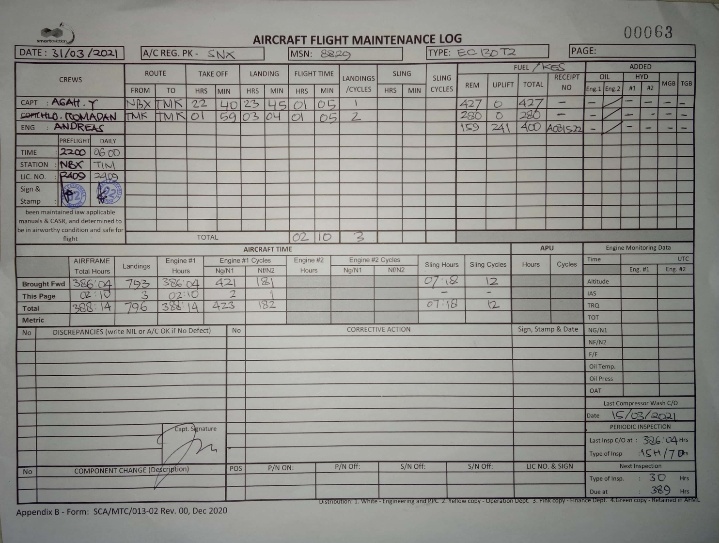 00063
AIRCRAFT FLIGHT MAINTENANCE LOG
DATE : 31/03/2021 A/C REG. PK - SNX MSN: 8229 TYPE: EC 130 T2 PAGE:
CREWS ROUTE TAKE OFF LANDING FLIGHT TIME LANDINGS /CYCLES SLING SLING CYCLES FUEL / KGS RECEIPT NO ADDED
OIL HYD MGB TGB
FROM TO HRS MIN HRS MIN HRS MIN HRS MIN REM UPLIFT TOTAL Eng.1 Eng.2 #1 #2
CAPT : AGAH. Y NBX TMK 22 40 23 45 01 05 1 427 0 427 -
ROMADAN TMK TMK 01 59 03 04 01 05 2 280 0 280 -
ENG : ANDREAS 159 241 400
PREFLIGHT DAILY
TIME 2200 0600
STATION : NBX TIM
LIC. NO. : 2409 2409
Sign & Stamp :
been maintained law applicable
manuals & CASR, and determined to
be in airworthy condition and safe for
flight
TOTAL 02 10 3
AIRCRAFT TIME APU Engine Monitoring Data
AIRFRAME Total Hours Landings Engine #1 Hours Engine #1 Cycles Engine #2 Hours Engine #2 Cycles Sling Hours Sling Cycles Hours Cycles Time UTC
Ng/N1 Nf/N2 Ng/N1 Nf/N2 Eng. #1 Eng. #2
Brought Fwd 386:04 793 386:04 421 181 07:18 12 Altitude
This Page 02:10 3 02:10 2 1 - - IAS
Total 388:14 796 388:14 423 182 07:18 12 TRQ
Metric TOT
No DISCREPANCIES (write NIL or A/C OK if No Defect) No CORRECTIVE ACTION Sign, Stamp & Date NG/N1
NF/N2
F/F
Oil Temp.
Oil Press
OAT
Last Compressor Wash C/O
Date 15/03/2021
PERIODIC INSPECTION
Capt. Signature
Last Insp C/O at : 386:04 Hrs
Type of Insp 15H/7D
No COMPONENT CHANGE (Description) POS P/N ON. P/N Off: S/N Off: S/N Off: LIC NO. & SIGN Next Inspection
Type of Insp. : 30 Hrs
Due at 389 Hrs
Distribution: 1. White - Engineering and PPC 2. Yellow copy - Operation Dept. 3. Pink copy - Finance Dept. 4.Green copy - Retained in AFML
Appendix B - Form: SCA/MTC/013-02 Rev. 00, Dec 2020